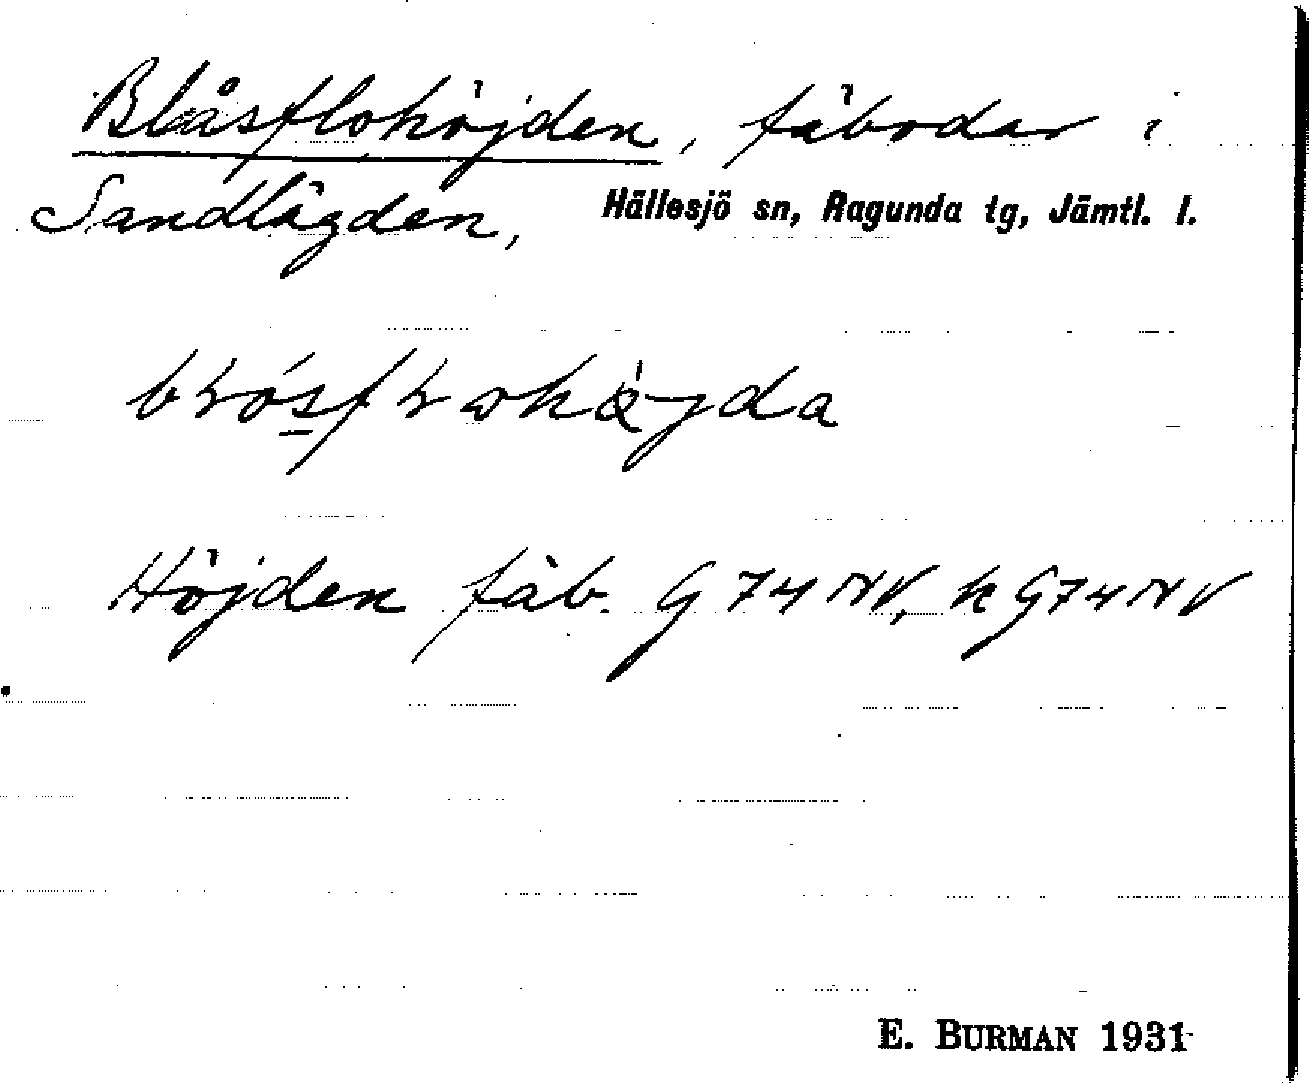 Blåsflohöjden, fäbodar i
Sandlägden, Hällesjö sn, Ragunda tg, Jämtl. l.
Höjden fäb. G 74 NV, h G74NV
E. BURMAN 1931